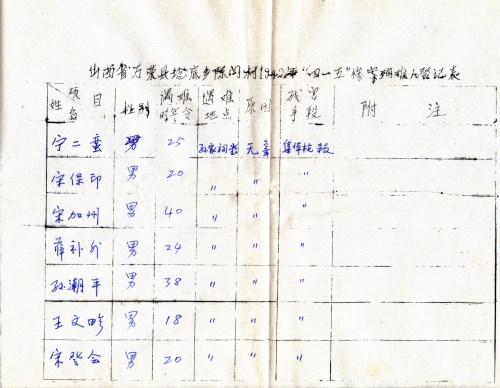 山西省万荣县埝底乡陈间村1942年"四一五"惨案遇难人登记表
项目 姓名 性别 遇难时年令 遇难地点 原因 残害手段 附注
宁二蛮 男 25 孙家祠堂 无辜 集体枪杀
宋保印 男 20 〃 〃 〃
宋加州 男 40 〃 〃 〃
薛补外 男 24 〃 〃 〃
孙潮平 男 38 〃 〃 〃
王文 男 18 〃 〃 〃
宋登会 男 20 〃 〃 〃